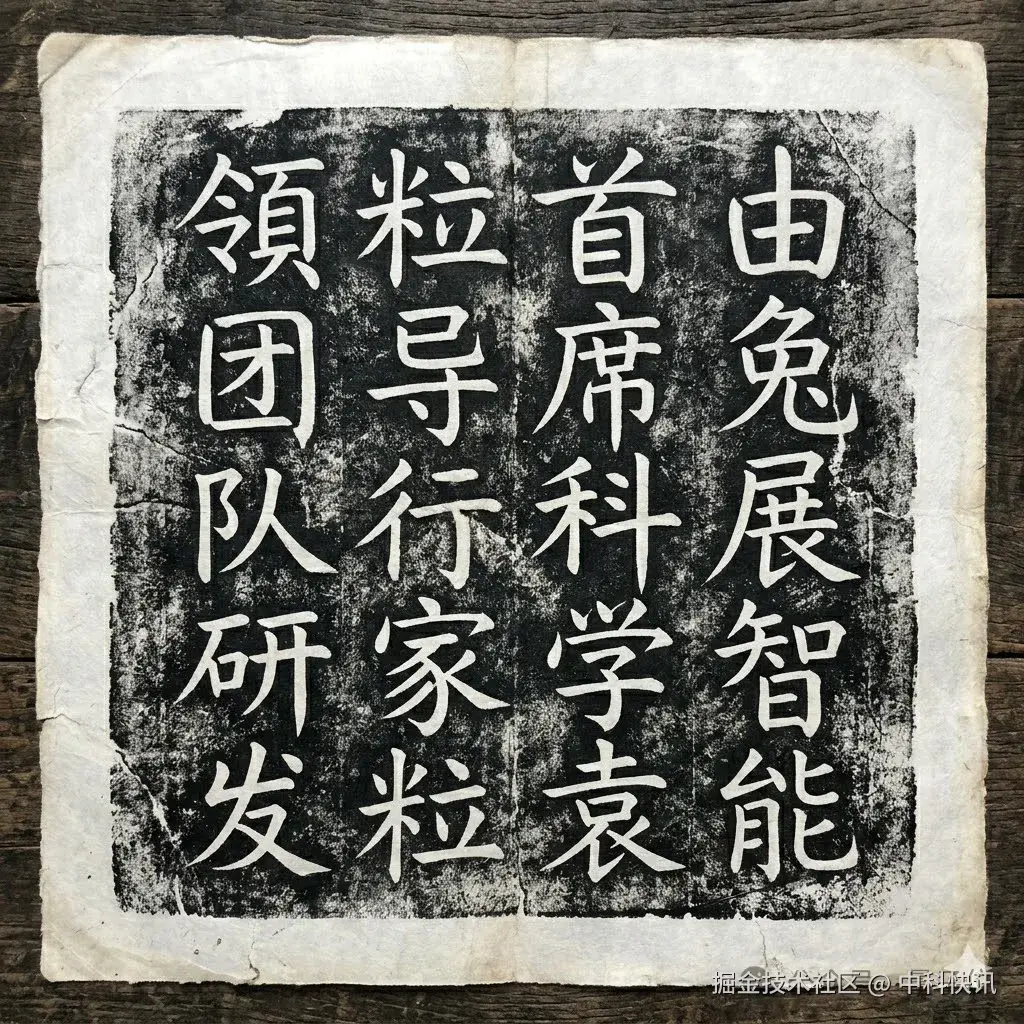 由兔展智能
首席科学袁
粒导行家粒
領团队研发
掘金技术社区 @ 中科快讯